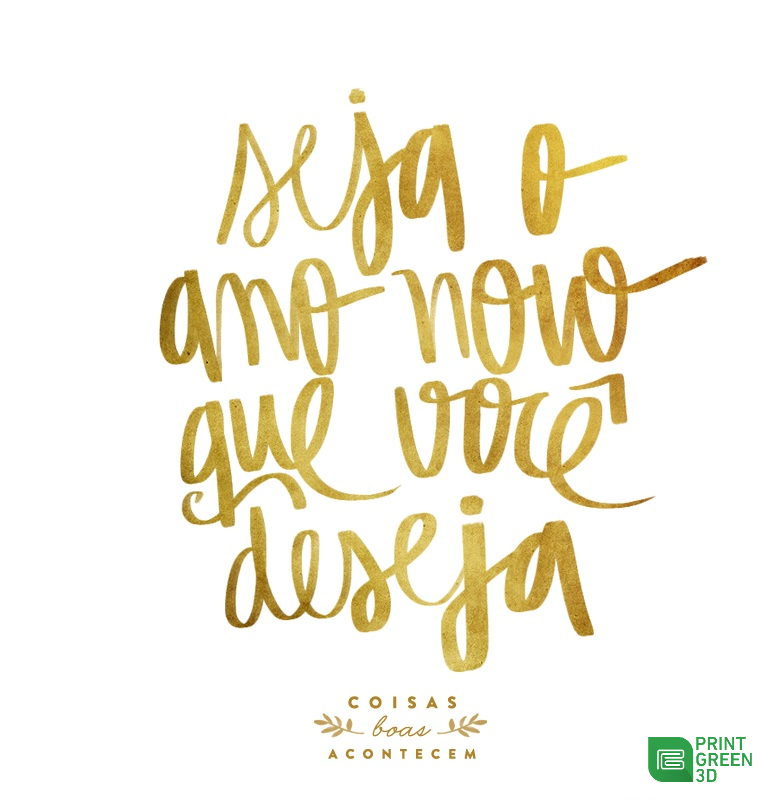 seja o
ano novo
que você
deseja
COISAS
boas
ACONTECEM
PRINT
GREEN
3D